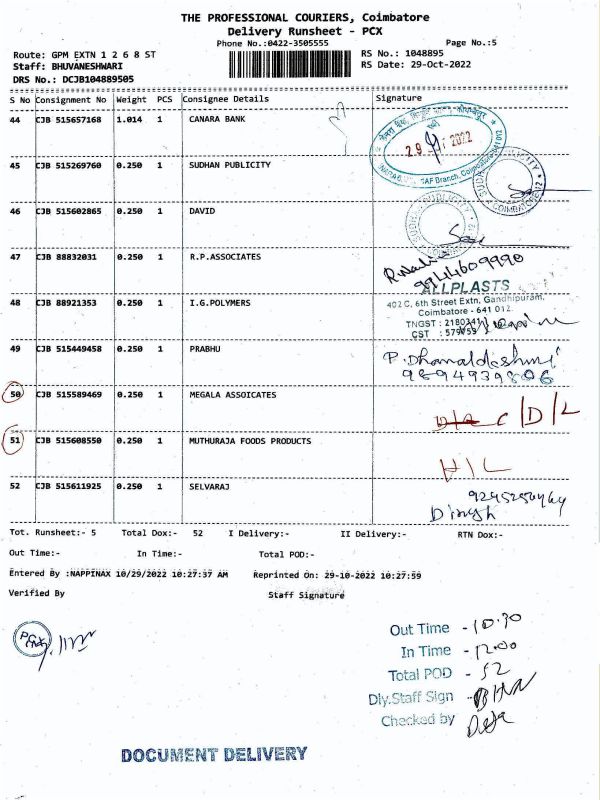 THE PROFESSIONAL COURIERS, Coimbatore
Delivery Runsheet - PCX
Phone No.:0422-3505555
Page No.:5
Route: GPM EXTN 1 2 6 8 ST
RS No.: 1048895
Staff: BHUVANESHWARI
RS Date: 29-Oct-2022
DRS No.: DCJB104889505
S No Consignment No Weight PCS Consignee Details Signature
44 CJB 515657168 1.014 1 CANARA BANK
45 CJB 515269760 0.250 1 SUDHAN PUBLICITY
46 CJB 515602865 0.250 1 DAVID
47 CJB 88832031 0.250 1 R.P.ASSOCIATES
9944609990
48 CJB 88921353 0.250 1 I.G.POLYMERS
ALLPLASTS
402 C, 6th Street Extn, Gandhipuram,
Coimbatore - 641 012.
TNGST : 2180341
CST : 579759
49 CJB 515449458 0.250 1 PRABHU
P. Dhanalakshmi
9894939806
50 CJB 515589469 0.250 1 MEGALA ASSOICATES
C/D/L
51 CJB 515608550 0.250 1 MUTHURAJA FOODS PRODUCTS
H/L
52 CJB 515611925 0.250 1 SELVARAJ
Dinesh
Tot. Runsheet:- 5 Total Dox:- 52 I Delivery:- II Delivery:- RTN Dox:-
Out Time:- In Time:- Total POD:-
Entered By :NAPPINAX 10/29/2022 10:27:37 AM Reprinted On: 29-10-2022 10:27:59
Verified By Staff Signature
Out Time - 10.30
In Time - 12.00
Total POD - 52
Dly.Staff Sign -
Checked by
DOCUMENT DELIVERY